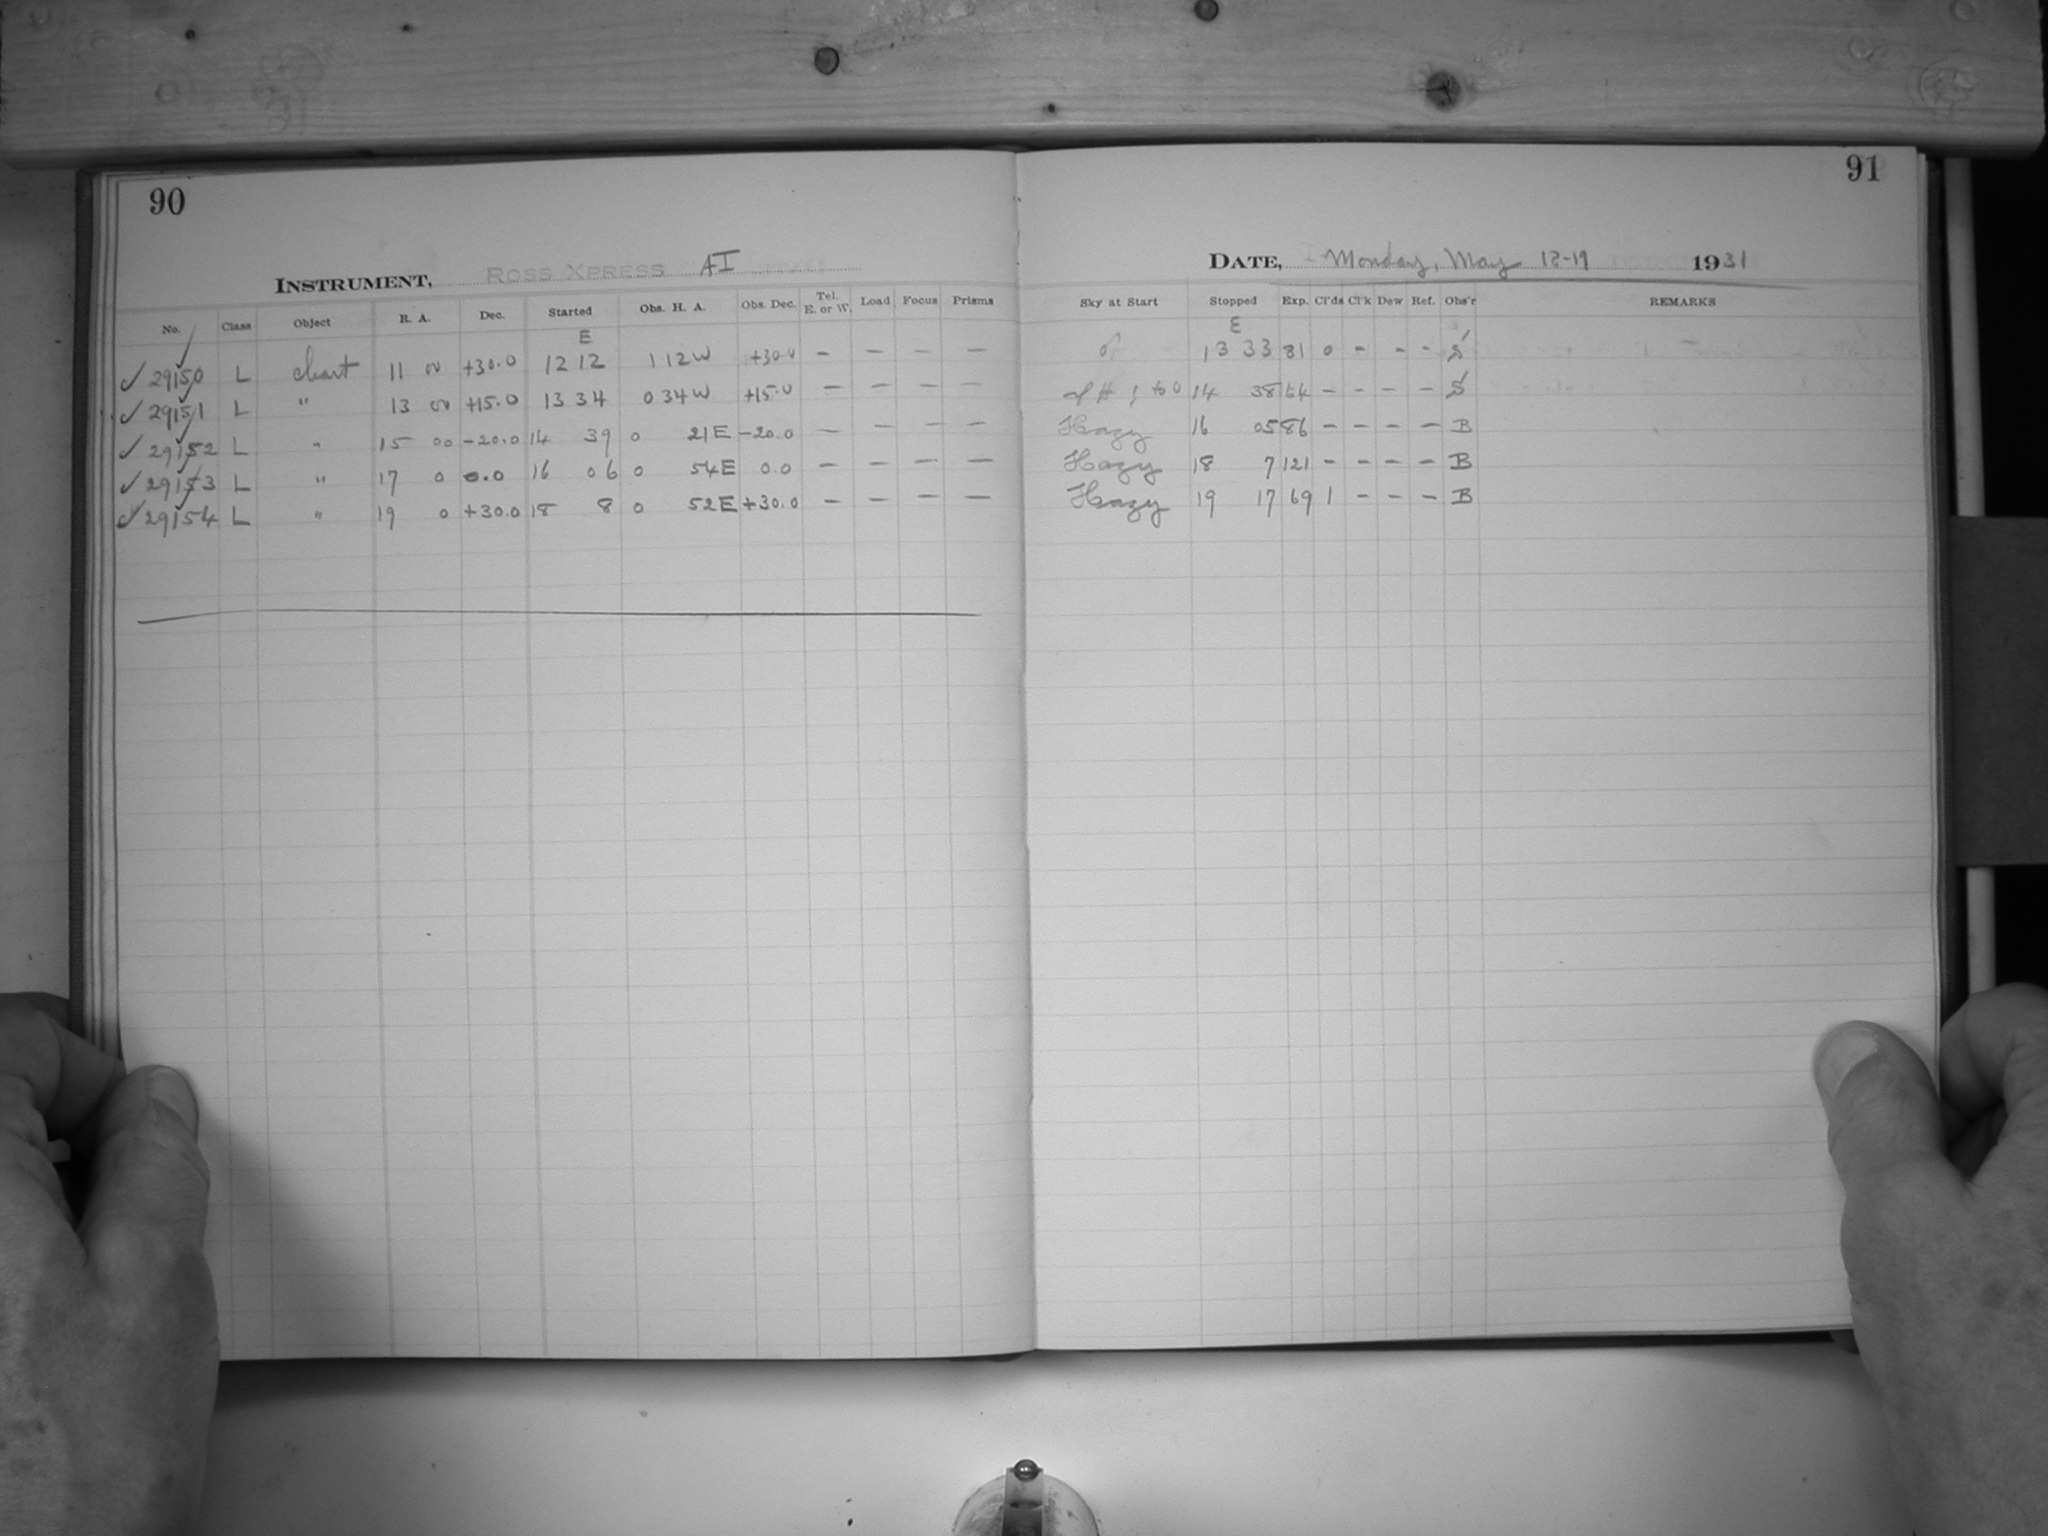 90
INSTRUMENT, ROSS XPRESS AI
No. Class Object R. A. Dec. Started Obs. H. A. Obs. Dec. Tel. E. or W. Load Focus Prisms
E
✓ 29150 L chart 11 00 +30.0 12 12 1 12 W +30.0 — — — —
✓ 29151 L " 13 00 +15.0 13 34 0 34 W +15.0 — — — —
✓ 29152 L " 15 00 -20.0 14 39 0 21 E -20.0 — — — —
✓ 29153 L " 17 0 0.0 16 06 0 54 E 0.0 — — — —
✓ 29154 L " 19 0 +30.0 18 8 0 52 E +30.0 — — — —
91
DATE, Monday, May 18-19 1931
Sky at Start Stopped Exp. Cl'ds Cl'k Dew Ref. Obs'r REMARKS
E
13 33 81 0 - - - S
14 38 64 - - - - S
Hazy 16 05 86 - - - - B
Hazy 18 7 121 - - - - B
Hazy 19 17 69 1 - - - B